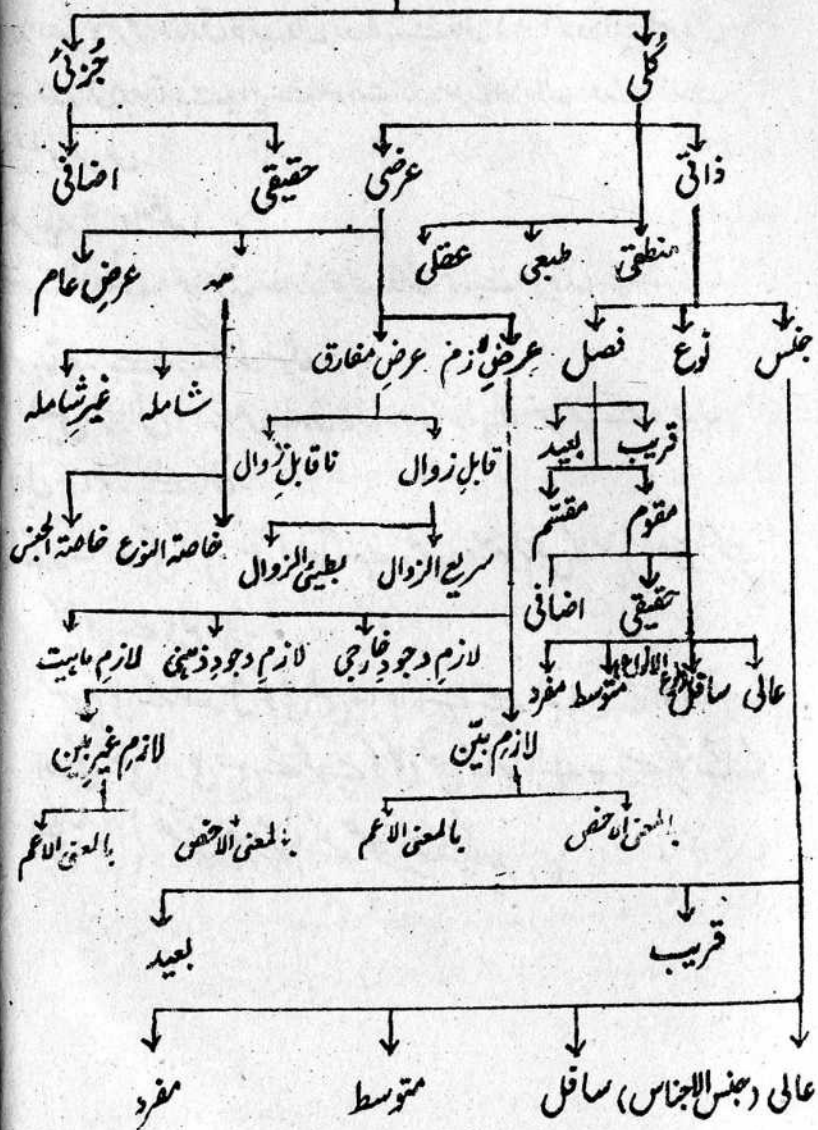 کُلی جُزئی
ذاتی عرضی حقیقی اضافی
منطقی طبعی عقلی عرضِ عام
جنس نوع فصل عرضِ لازم عرضِ مفارق شاملہ غیر شاملہ
قریب بعید قابلِ زوال ناقابلِ زوال
مقوم مقسّم سریع الزوال بطیئ الزوال خاصۃ النوع خاصۃ الجنس
حقیقی اضافی
لازمِ وجودِ خارجی لازمِ وجودِ ذہنی لازمِ ماہیت
عالی سافل (نوع الانواع) متوسط مفرد
لازمِ بیّن لازمِ غیر بیّن
بالمعنی الاخص بالمعنی الاعم بالمعنی الاخص بالمعنی الاعم
قریب بعید
عالی (جنس الاجناس) سافل متوسط مفرد